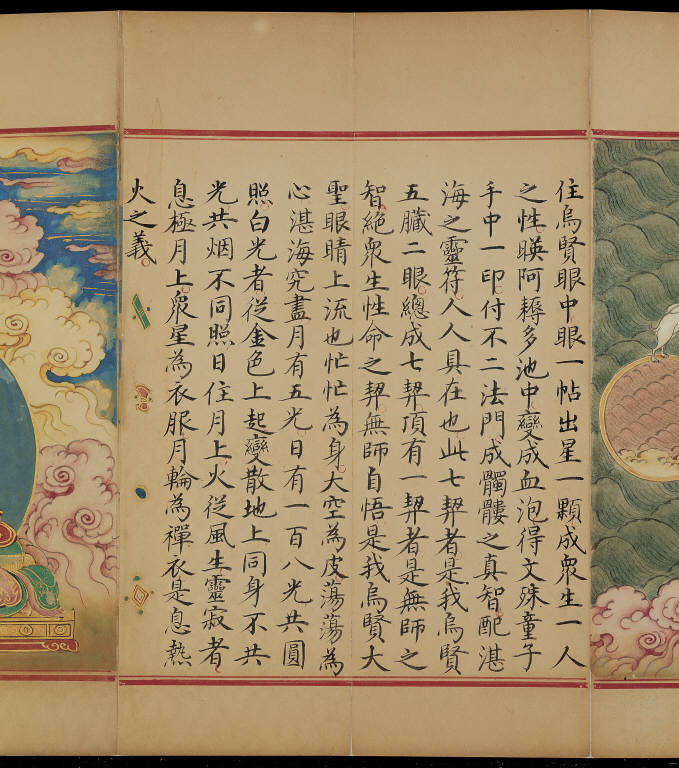 住烏賢眼中眼一帖出星一顆成眾生一人
之性暎阿耨多池中變成血泡得文殊童子
手中一印付不二法門成髑髏之真智配湛
海之靈符人人具在也此七栔者是我烏賢
五臟二眼總成七栔頂有一栔者是無師之
智絕眾生性命之栔無師自悟是我烏賢大
聖眼睛上流也忙忙為身大空為皮蕩蕩為
心湛海究盡月有五光日有一百八光共圓
照白光者從金色上起變散地上同身不共
光共烟不同照日住月上火從風生靈寂者
息極月上眾星為衣服月輪為禪衣是息熱
火之義